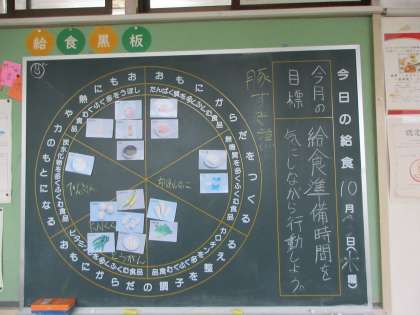 給食黒板
今日の給食 10月 日(水)曜
今月の目標
給食準備時間を
気にしながら行動しよう。
豚すき煮
おもにからだをつくる
たんぱく質を多くふくむ食品
無機質を多くふくむ食品
おもにからだの調子を整える
カロチンを多くふくむ食品
ビタミンCを多くふくむ食品
おもに熱や力のもとになる
炭水化物を多くふくむ食品
しぼうを多くふくむ食品